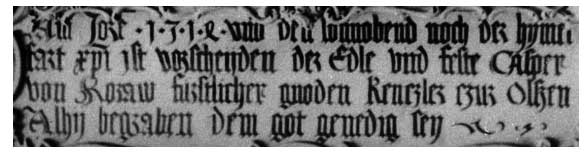 Als Jozt · 1 · 5 · 1 · 2 · vnd den sonnobend noch der hymel
fart xpi ist vorscheyden der Edle vnd feste Casper
von Kozaw furstlicher gnoden Kenczler czur Olszen
Alhy begraben dem got genedig sey